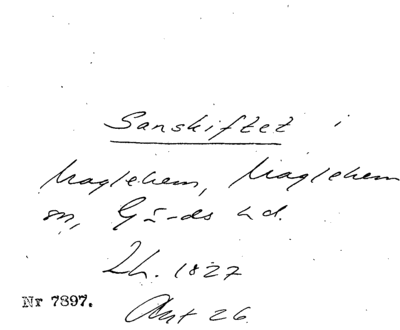 Sanskiftet i
Maglehem, Maglehem
sn, Gärds hd.
Lh. 1827
Akt 26.
Nr 7897.